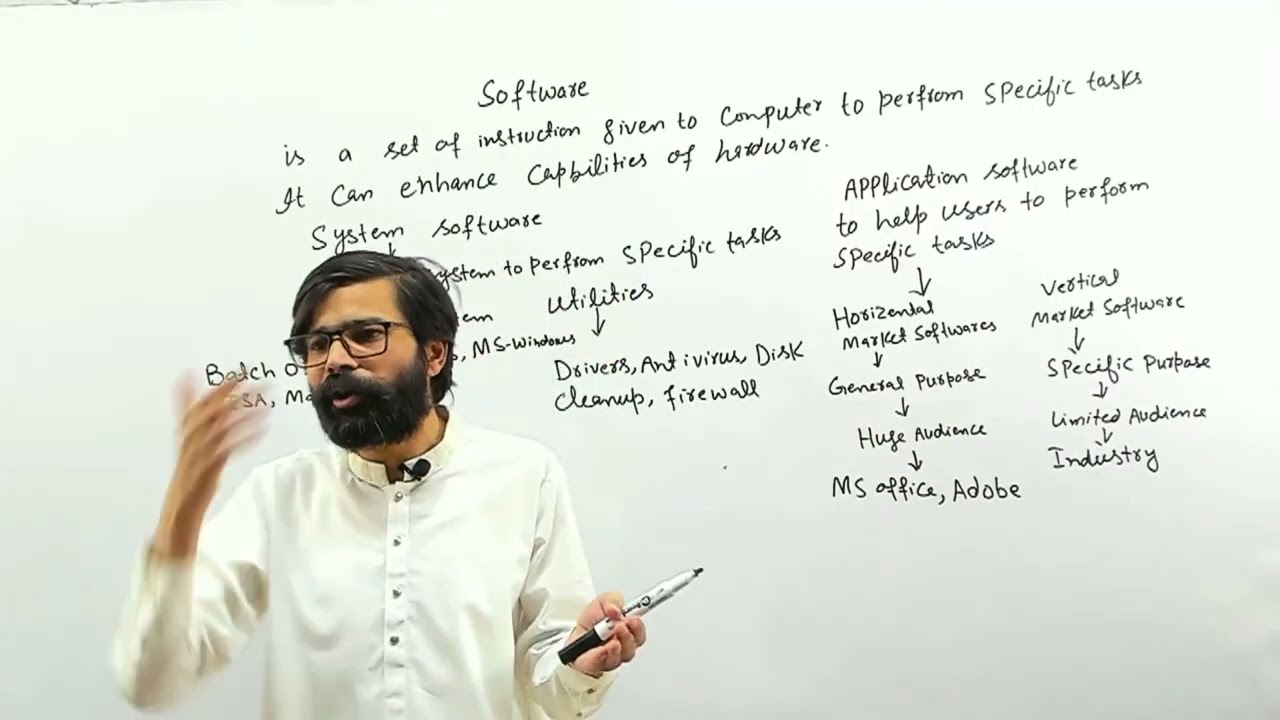 Software
is a set of instruction given to Computer to perfrom specific tasks
It can enhance Capbilities of hardware.
System software
System to perfrom specific tasks
Utilities
MS-Windows
Batch
Drivers, Antivirus, Disk
cleanup, firewall
Application software
to help users to perform
specific tasks
Horizental
Market Softwares
General Purpose
Huge Audience
MS office, Adobe
Vertical
Market Software
Specific Purpose
Limited Audience
Industry